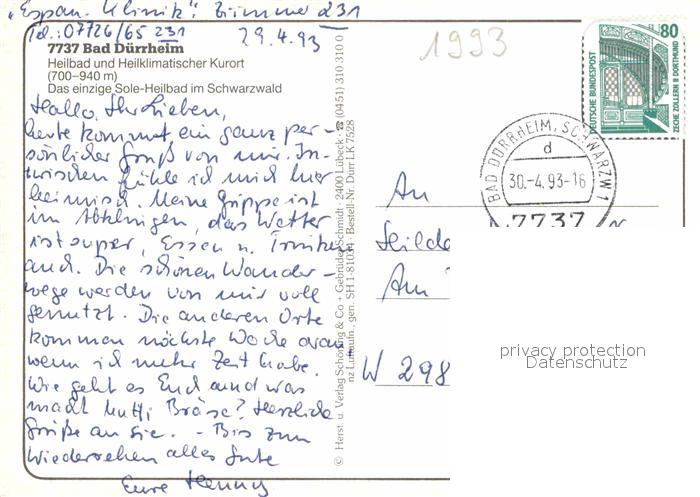 „Espan-Klinik“: Zimmer 231
Tel.: 07726/65 231
29.4.93
1993
7737 Bad Dürrheim
Heilbad und Heilklimatischer Kurort
(700–940 m)
Das einzige Sole-Heilbad im Schwarzwald
Hallo, Ihr Lieben,
heute kommt ein ganz per-
sönlicher Gruß von mir. In-
zwischen fühle ich mich hier
heimisch. Meine Grippe ist
im Abklingen, das Wetter
ist super, Essen u. Trinken
auch. Die schönen Wander-
wege werden von mir voll
genutzt. Die anderen Orte
kommen nächste Woche dran,
wenn ich mehr Zeit habe.
Wie geht es Euch und was
macht Mutti Bräse? Herzliche
Grüße an sie. - Bis zum
Wiedersehen alles Gute
Eure Henny
© Herst. u. Verlag Schöning & Co + Gebrüder Schmidt · 2400 Lübeck · ☎ (0451) 310 310
nz Luftaufn., gen. SH 1-810/34 · Bestell-Nr. Dürr LK 7528
80
DEUTSCHE BUNDESPOST
ZECHE ZOLLERN II DORTMUND
BAD DÜRRHEIM, SCHWARZW 1
d
30.-4.93-16
7737
An
Hilde
Am
W 298
privacy protection
Datenschutz